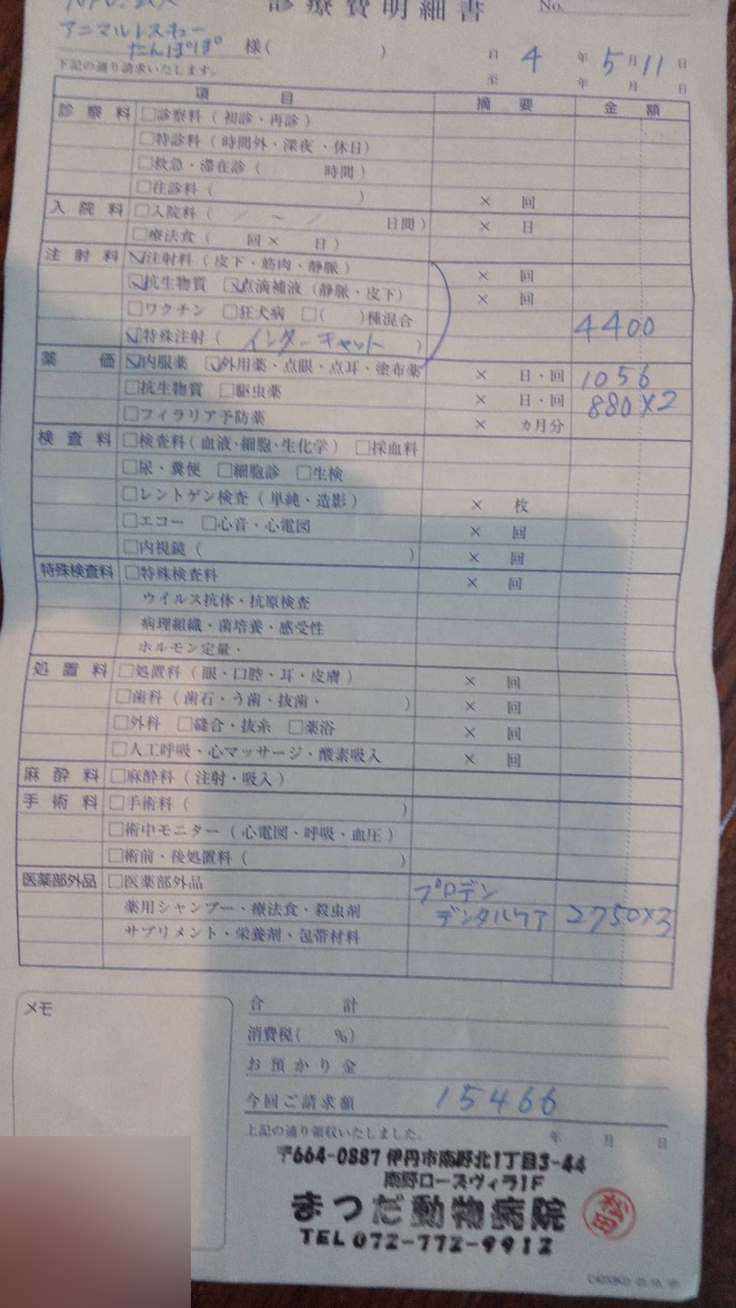 診療費明細書
No.
アニマルレスキュー
たんぽぽ 様( )
自 4 年 5 月 11 日
下記の通り請求いたします。
至 年 月 日
項 目 摘 要 金 額
診察料 □診察料(初診・再診)
□特診料(時間外・深夜・休日)
□救急・滞在診( 時間)
□往診料( ) × 回
入院料 □入院料( / ~ / 日間) × 日
□療法食( 回× 日)
注射料 ☑注射料(皮下・筋肉・静脈) × 回
☑抗生物質 ☑点滴補液(静脈・皮下) × 回
□ワクチン □狂犬病 □( )種混合 4400
☑特殊注射( インターキャット )
薬価 ☑内服薬 ☑外用薬・点眼・点耳・塗布薬 × 日・回 1056
□抗生物質 □駆虫薬 × 日・回 880×2
□フィラリア予防薬 × カ月分
検査料 □検査料(血液・細胞・生化学) □採血料
□尿・糞便 □細胞診 □生検
□レントゲン検査(単純・造影) × 枚
□エコー □心音・心電図 × 回
□内視鏡( ) × 回
特殊検査料 □特殊検査料 × 回
ウイルス抗体・抗原検査
病理組織・菌培養・感受性
ホルモン定量・
処置料 □処置料(眼・口腔・耳・皮膚) × 回
□歯科(歯石・う歯・抜歯・ ) × 回
□外科 □縫合・抜糸 □薬浴 × 回
□人工呼吸・心マッサージ・酸素吸入 × 回
麻酔料 □麻酔料(注射・吸入)
手術料 □手術料( )
□術中モニター(心電図・呼吸・血圧)
□術前・後処置料( )
医薬部外品 □医薬部外品 プロデン
薬用シャンプー・療法食・殺虫剤 デンタルケア 2750×3
サプリメント・栄養剤・包帯材料
メモ
合 計
消費税( %)
お預かり金
今回ご請求額 15466
上記の通り領収いたしました。 年 月 日
〒664-0887 伊丹市南野北1丁目3-44
南野ローズヴィラ1F
まつだ動物病院
松田
TEL 072-772-9912